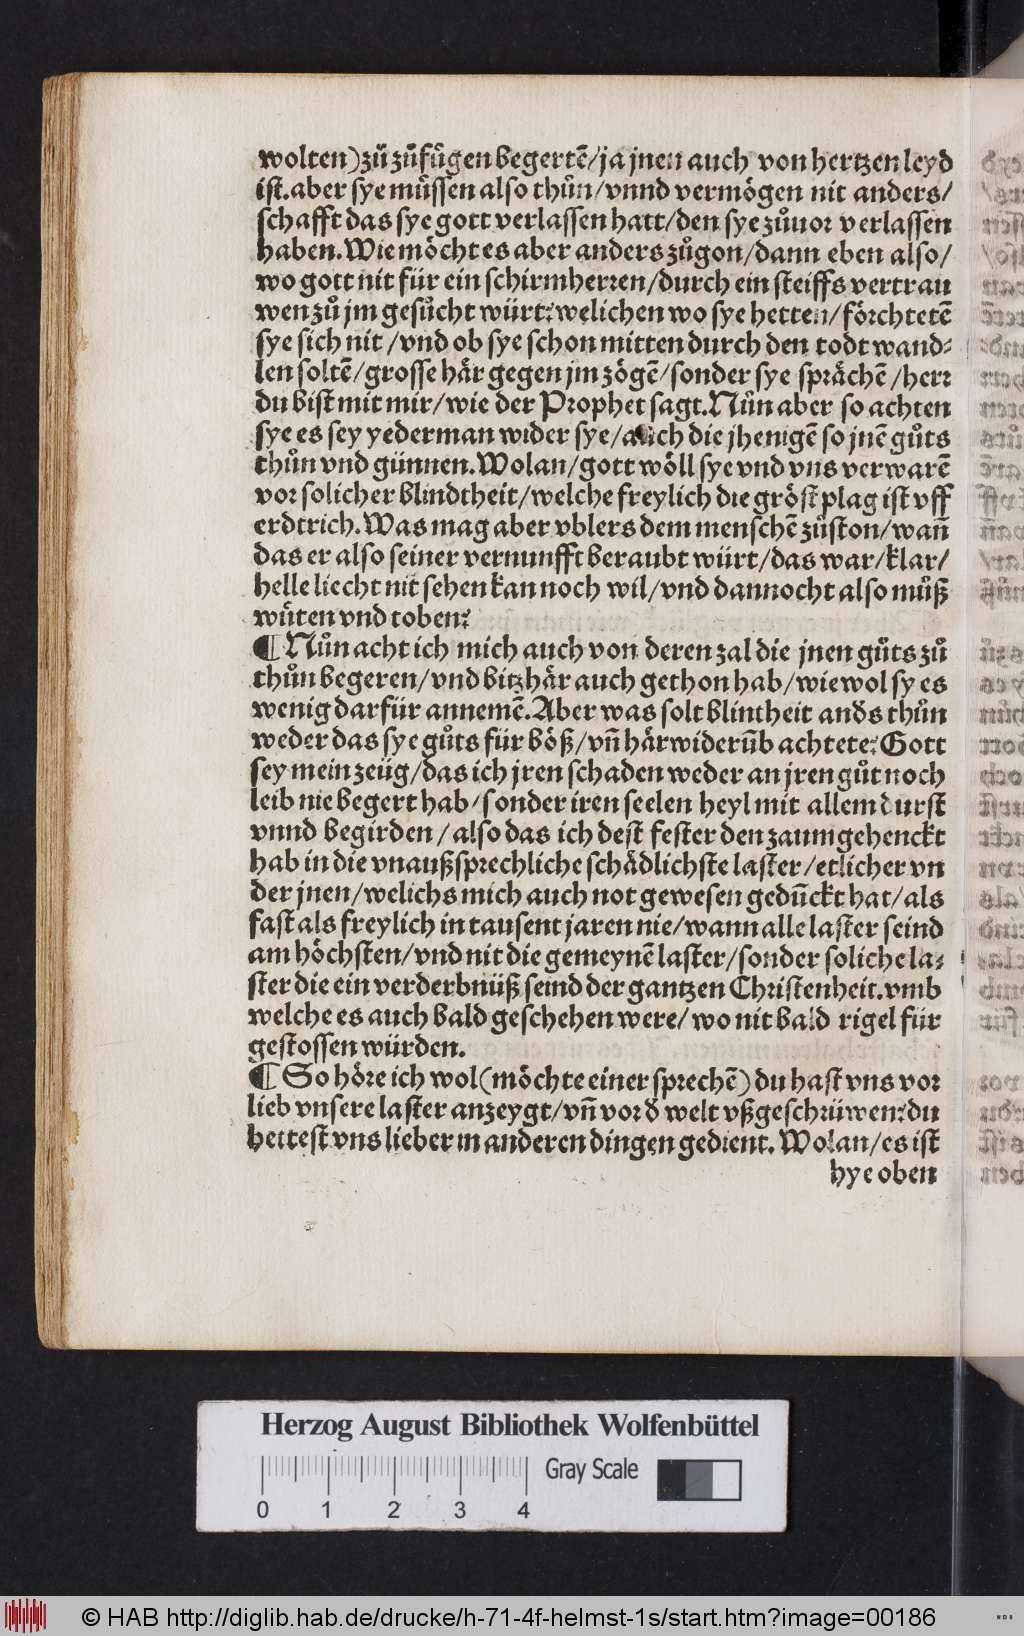 wolten)zů zůfůgen begertē/ja jnen auch von hertzen leyd
ist.aber sye müssen also thůn/vnnd vermögen nit anders/
schafft das sye gott verlassen hatt/den sye zůuor verlassen
haben.Wie möcht es aber anders zůgon/dann eben also/
wo gott nit für ein schirmherren/durch ein steiffs vertrau
wen zů jm gesůcht würt:welichen wo sye hetten/förchtetē
sye sich nit/vnd ob sye schon mitten durch den todt wand⸗
len soltē/grosse här gegen jm zögē/sonder sye sprächē/herr
du bist mit mir/wie der Prophet sagt.Nůn aber so achten
sye es sey yederman wider sye/auch die jhenigē so jnē gůts
thůn vnd günnen.Wolan/gott wöll sye vnd vns verwarē
vor solicher blindtheit/welche freylich die gröst plag ist vff
erdtrich.Was mag aber vblers dem menschē zůston/wañ
das er also seiner vernunfft beraubt würt/das war/klar/
helle liecht nit sehen kan noch wil/vnd dannocht also můß
wüten vnd toben:
¶ Nůn acht ich mich auch von deren zal die jnen gůts zů
thůn begeren/vnd bitzhär auch gethon hab/wiewol sy es
wenig darfür annemē.Aber was solt blintheit anđs thůn
weder das sye gůts für böß/vñ härwiderūb achtete:Gott
sey mein zeüg/das ich jren schaden weder an jren gůt noch
leib nie begert hab/sonder iren seelen heyl mit allem durst
vnnd begirden/also das ich dest fester den zaum gehenckt
hab in die vnaußsprechliche schädlichste laster/etlicher vn
der jnen/welichs mich auch not gewesen gedūckt hat/als
fast als freylich in tausent jaren nie/wann alle laster seind
am höchsten/vnd nit die gemeynē laster/sonder soliche la⸗
ster die ein verderbnüß seind der gantzen Christenheit.vmb
welche es auch bald geschehen were/wo nit bald rigel für
gestossen würden.
¶ So höre ich wol(möchte einer sprechē)du hast vns vor
lieb vnsere laster anzeygt/vñ vor đ welt vßgeschrüwen:du
hettest vns lieber in anderen dingen gedient.Wolan/es ist
hye oben
Herzog August Bibliothek Wolfenbüttel
Gray Scale
0 1 2 3 4
© HAB http://diglib.hab.de/drucke/h-71-4f-helmst-1s/start.htm?image=00186